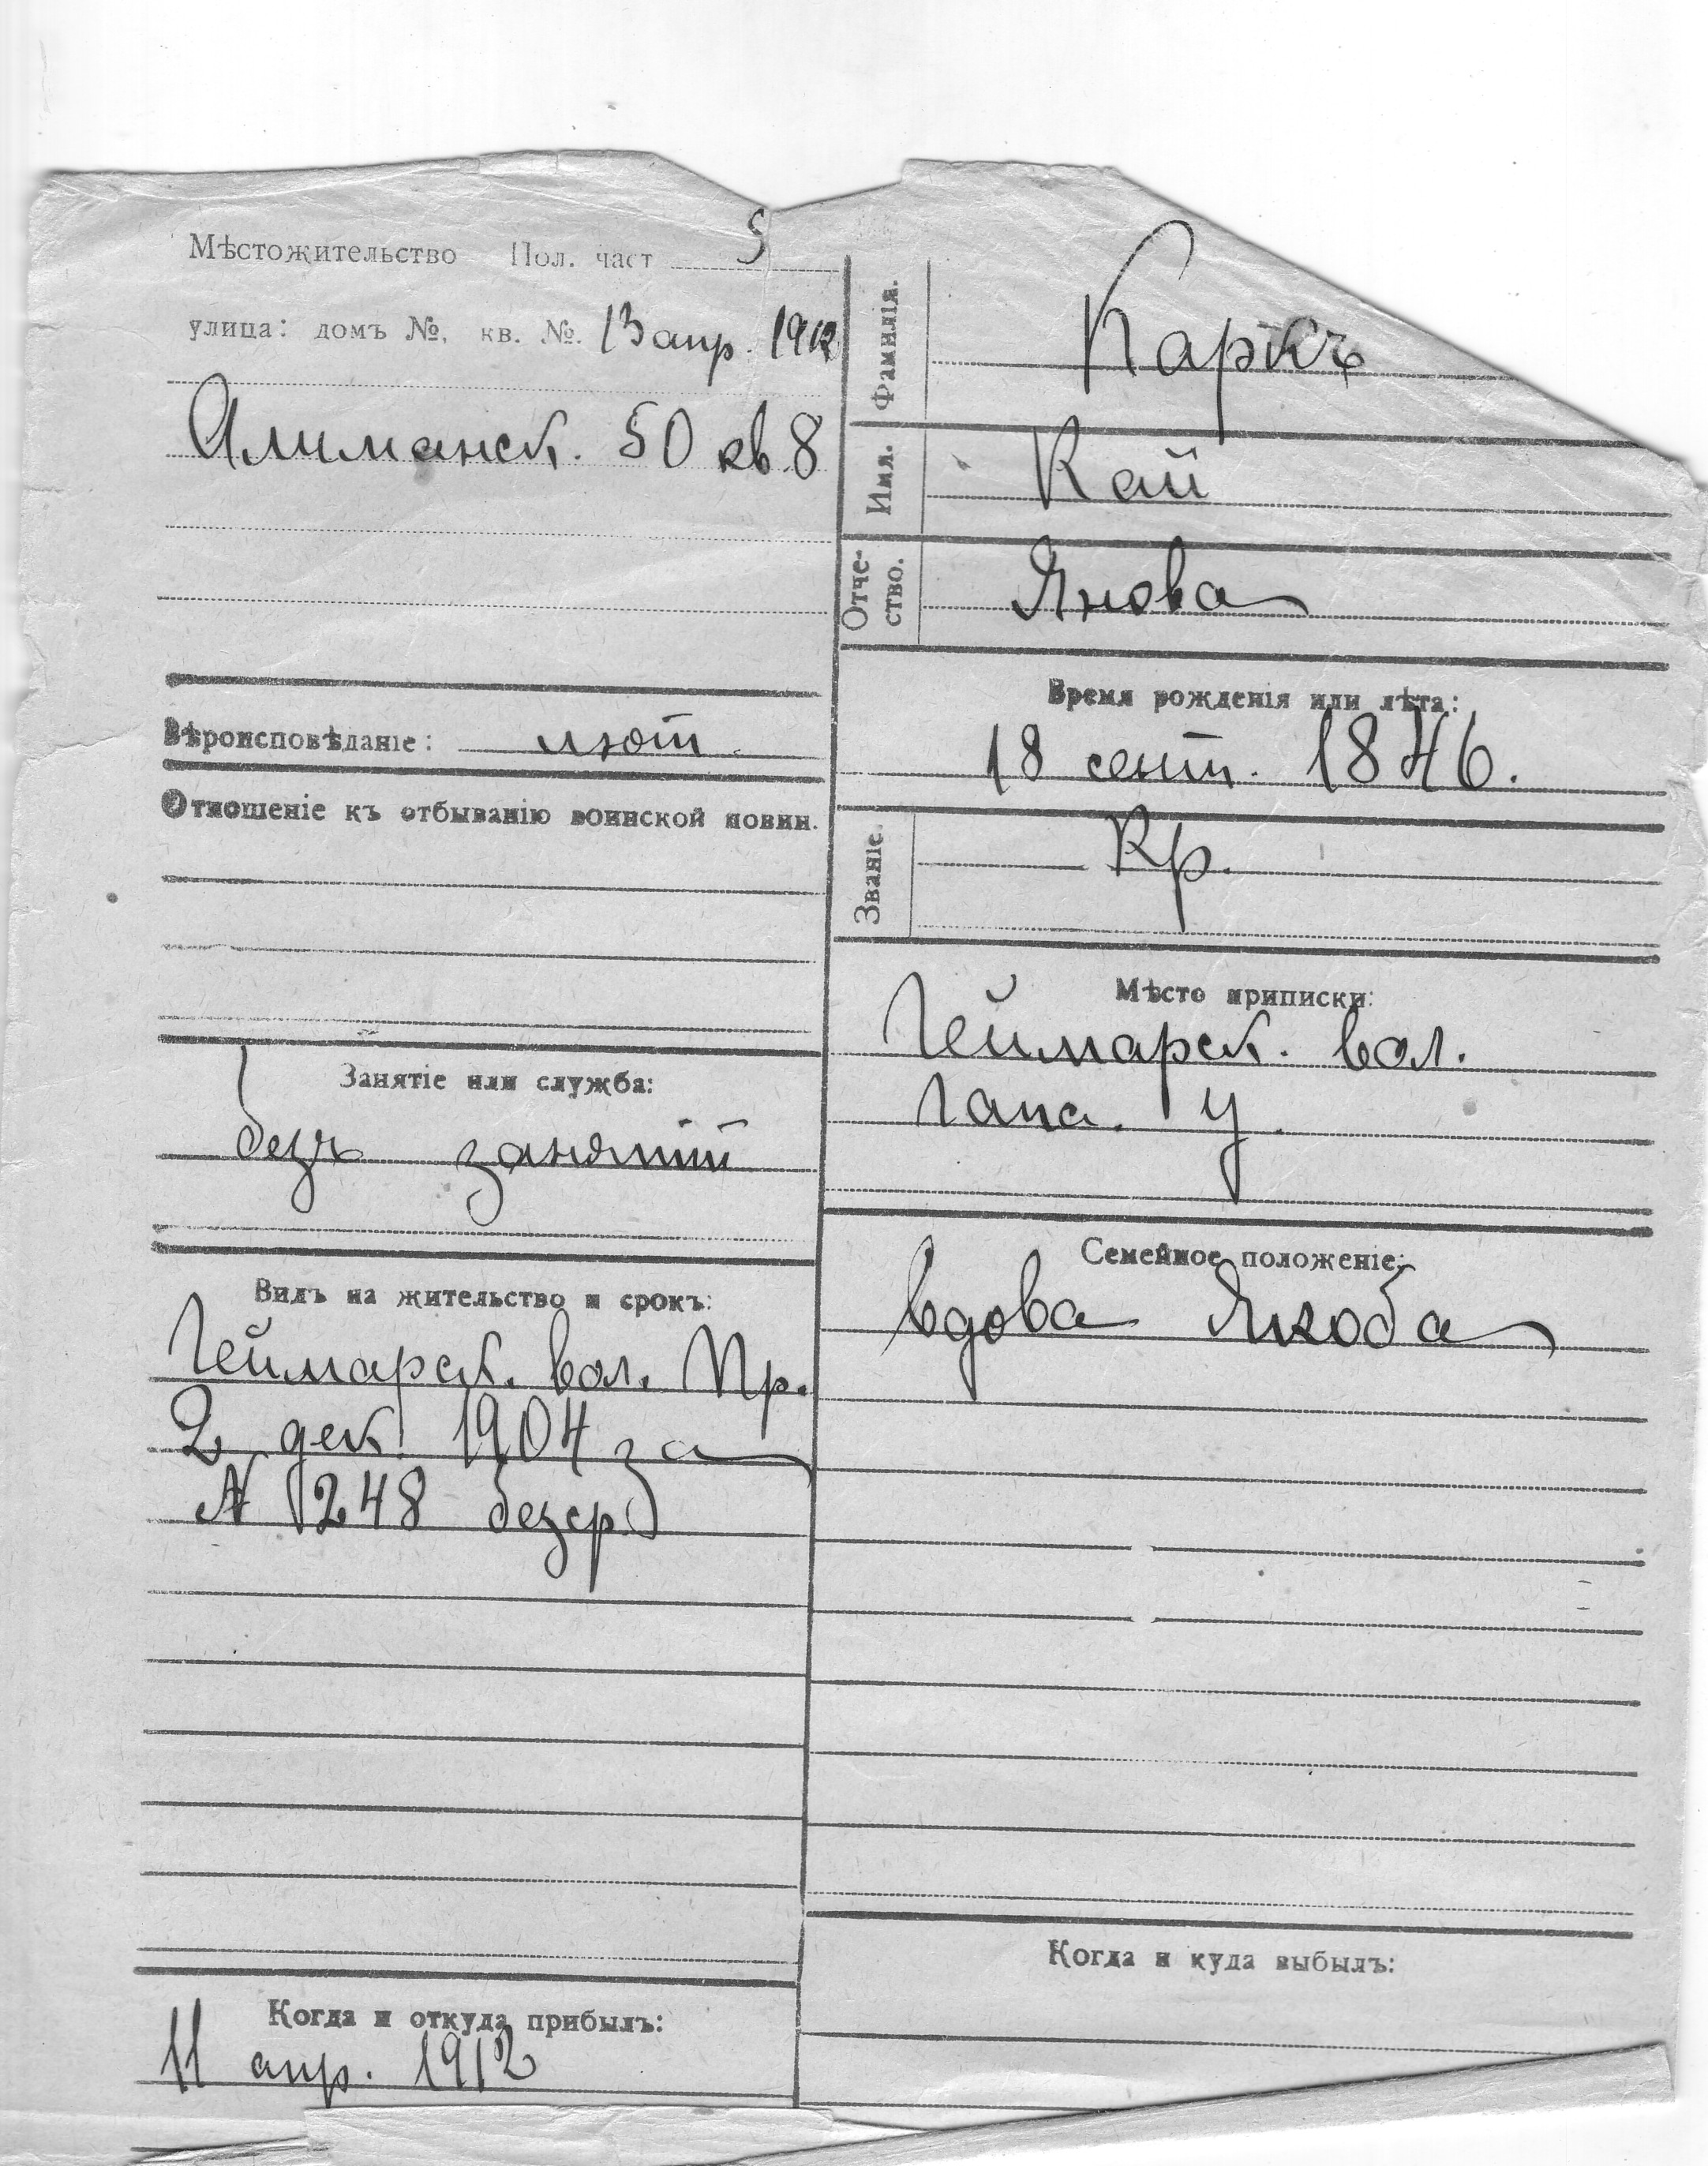 Мѣстожительство Пол. част 5
улица: домъ №, кв. №. 13 апр. 1912
Алиманск. 50 кв. 8
Вѣроисповѣданіе: лют.
Отношеніе къ отбыванію воинской повин.
Занятіе или служба:
безъ занятій
Видъ на жительство и срокъ:
Геймарск. вол. Пр.
2 дек. 1904 за
N 1248 безср.
Когда и откуда прибылъ:
11 апр. 1912
Фамилія. Каркъ
Имя. Кай
Отче-
ство. Янова
Время рожденія или лѣта:
18 сент. 1846.
Званіе. Кр.
Мѣсто приписки:
Геймарск. вол.
Гапс. у.
Семейное положеніе:
вдова Якоба
Когда и куда выбылъ: